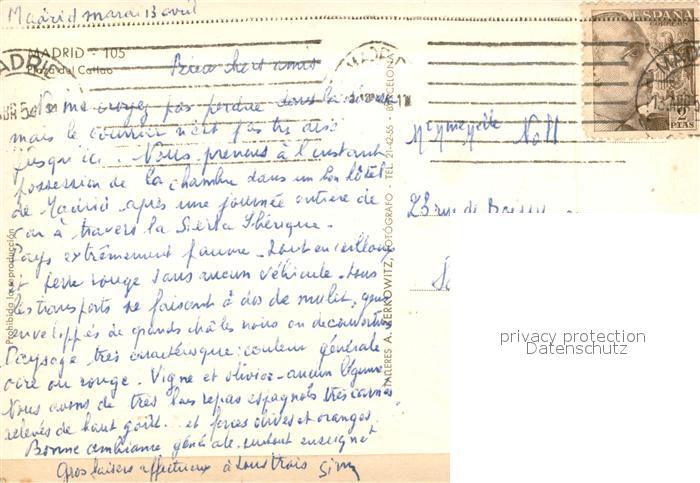 Madrid mardi 13 avril
MADRID - 105
Plaza del Callao
Bien chers amis
Ne me croyez pas perdue dans la
mais le courrier n'est pas très aisé
jusqu'ici. Nous prenons à l'instant
possession de la chambre dans un bon hôtel
de Madrid après une journée entière de
car à travers la Sierra Ibérique.
Pays extrêmement pauvre. tout en cailloux
et terre rouge sans aucun véhicule. tous
les transports se faisant à dos de mulet, gens
enveloppés de grands châles noirs ou de couvertures
Paysage très caractéristique: couleur générale
ocre ou rouge. Vigne et olivier. aucun légume
Nous avons de très bons repas espagnols très carnés,
relevés de haut goût. et forces olives et oranges.
Bonne ambiance générale. surtout
Gros baisers affectueux à tous trois
Prohibida la reproducción
TALLERES A. ZERKOWITZ, FOTÓGRAFO - TEL. 21-42-55 - BARCELONA
MADRID
MADRID
ESPAÑA
CORREOS
2
PTAS
Mr Mme Noll
23 rue de
privacy protection
Datenschutz